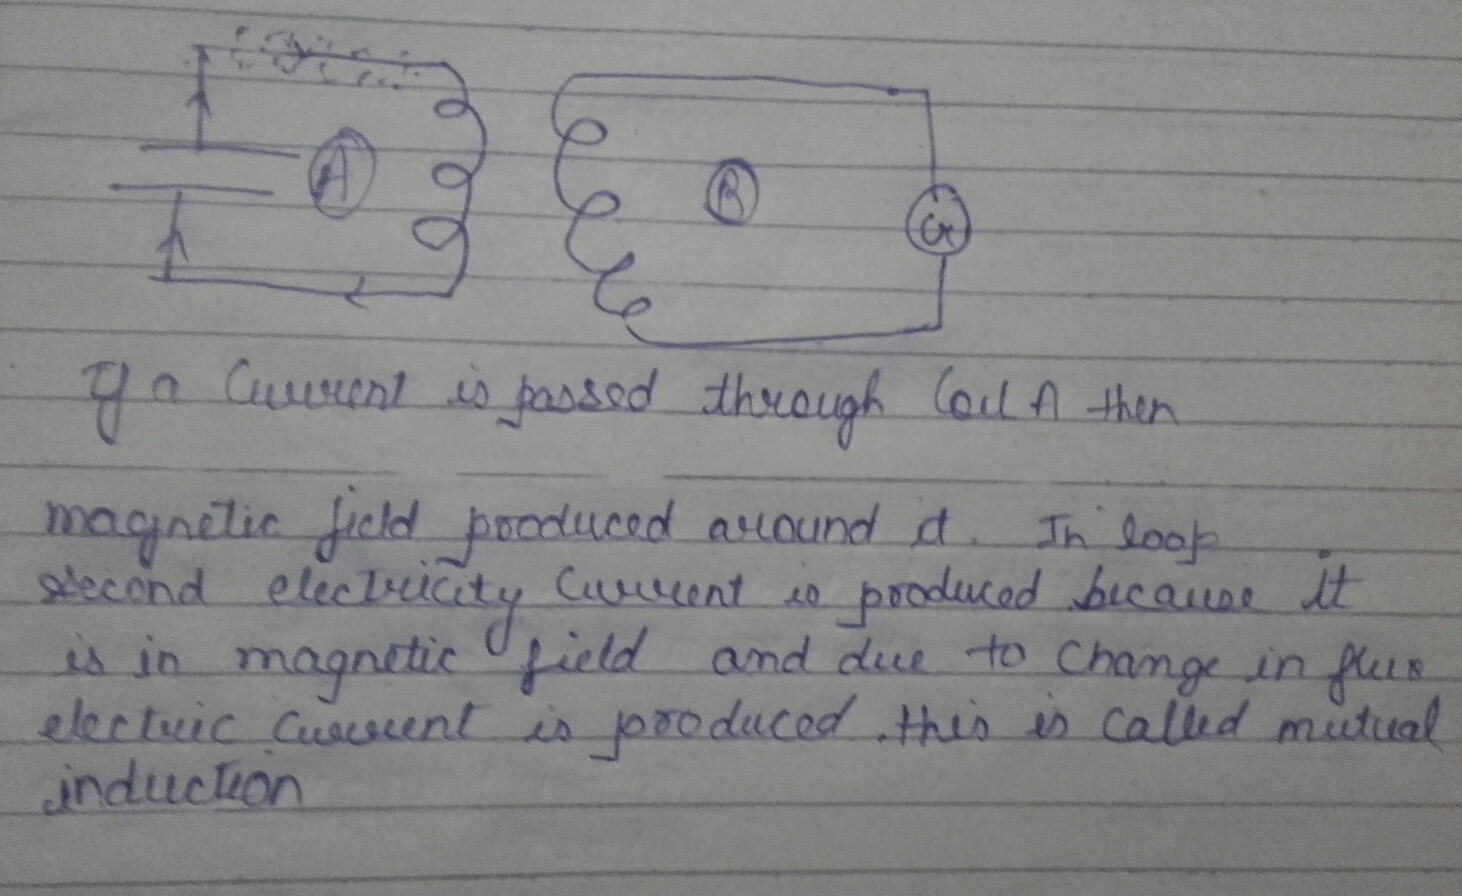 A
B
G
If a Current is passed through Coil A then
magnetic field produced around it. In loop
second electricity Current is produced because it
is in magnetic field and due to change in flux
electric current is produced. this is called mutual
induction